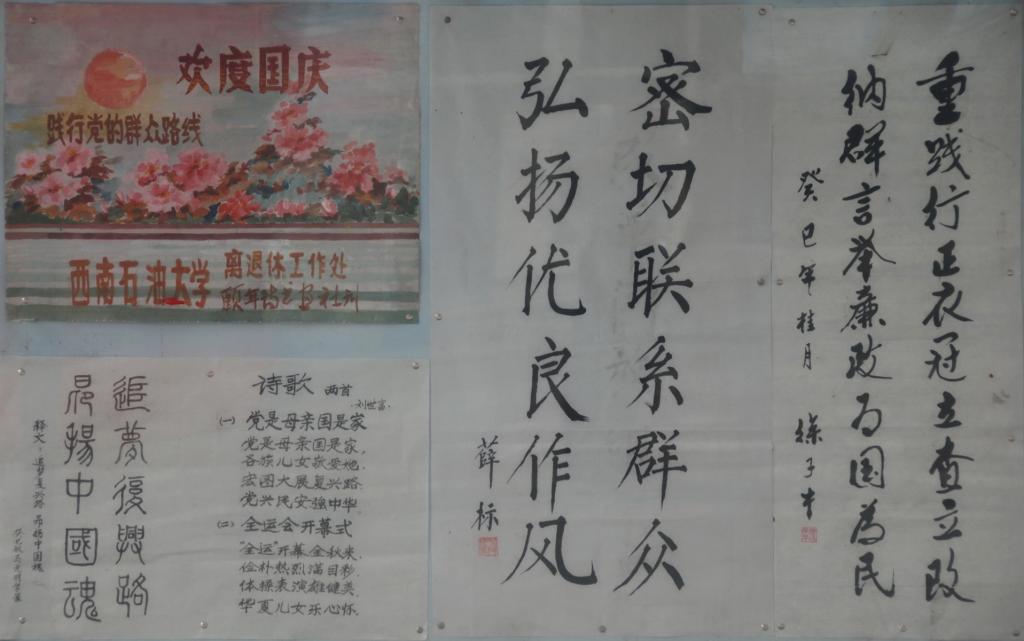 欢度国庆
践行党的群众路线
西南石油大学
离退休工作处
颐年诗书画社刊
诗歌 两首
刘世富
(一) 党是母亲国是家
党是母亲国是家,
各族儿女敬爱她.
宏图大展复兴路
党兴民安強中华
(二) 全运会开幕式
"全运"开幕金秋来,
俭朴热烈满目彩.
体操表演雄健美,
华夏儿女乐心怀.
追夢復興路
昂揚中國魂
释文:追梦复兴路 昂扬中国魂
密切联系群众
弘扬优良作风
薛标
重践行正衣冠立查立改
纳群言举廉政为国為民
癸巳年桂月